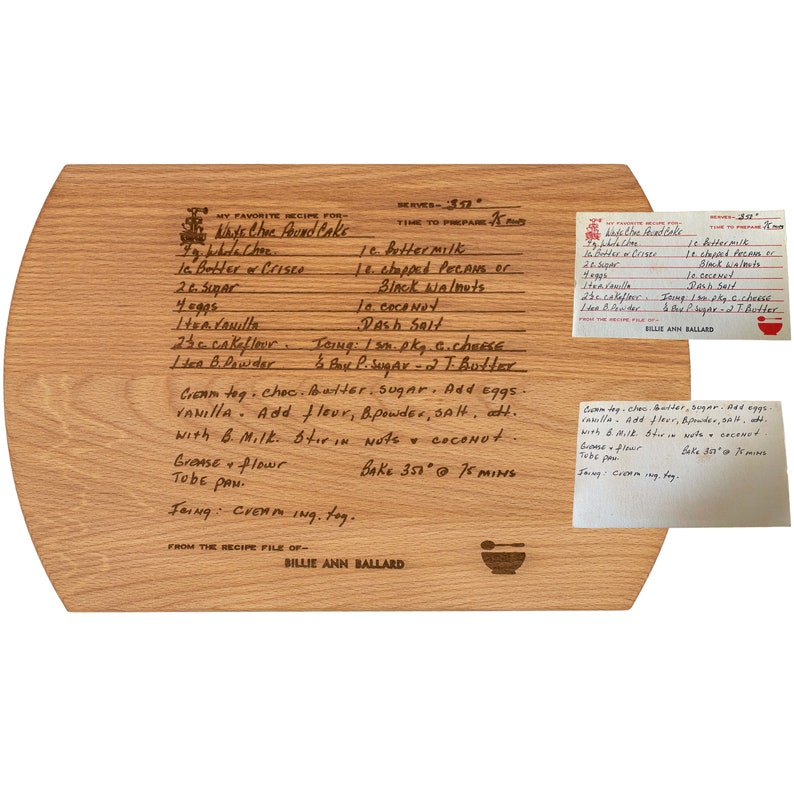 MY FAVORITE RECIPE FOR-
SERVES- 350°
White Choc Pound Cake
TIME TO PREPARE 75 mins
4 oz White Choc.
1 c. Buttermilk
1c. Butter or Crisco
1c. chopped Pecans or
2 c. Sugar
Black Walnuts
4 eggs
1c. coconut
1 tea. vanilla
Dash Salt
2½ c. cakeflour.
Icing: 1 sm. pkg. c. cheese
1 tea B. Powder
½ Box P. Sugar - 2 T. Butter
Cream tog. choc. Butter, sugar. Add eggs.
vanilla. Add flour, B.powder, salt, alt.
with B. Milk. Stir in nuts & coconut.
Grease & flour
Bake 350° @ 75 mins
Tube pan.
Icing: Cream ing. tog.
FROM THE RECIPE FILE OF-
BILLIE ANN BALLARD
MY FAVORITE RECIPE FOR-
SERVES- 350°
White Choc Pound Cake
TIME TO PREPARE 75 mins
4 oz White Choc.
1 c. Buttermilk
1c. Butter or Crisco
1c. chopped Pecans or
2 c. Sugar
Black Walnuts
4 eggs
1c. coconut
1 tea. vanilla
Dash Salt
2½ c. cakeflour.
Icing: 1 sm. pkg. c. cheese
1 tea B. Powder
½ Box P. Sugar - 2 T. Butter
FROM THE RECIPE FILE OF-
BILLIE ANN BALLARD
Cream tog. choc. Butter, sugar. Add eggs.
vanilla. Add flour, B.powder, salt, alt.
with B. Milk. Stir in nuts & coconut
Grease & flour
Bake 350° @ 75 mins
Tube pan.
Icing: Cream ing. tog.